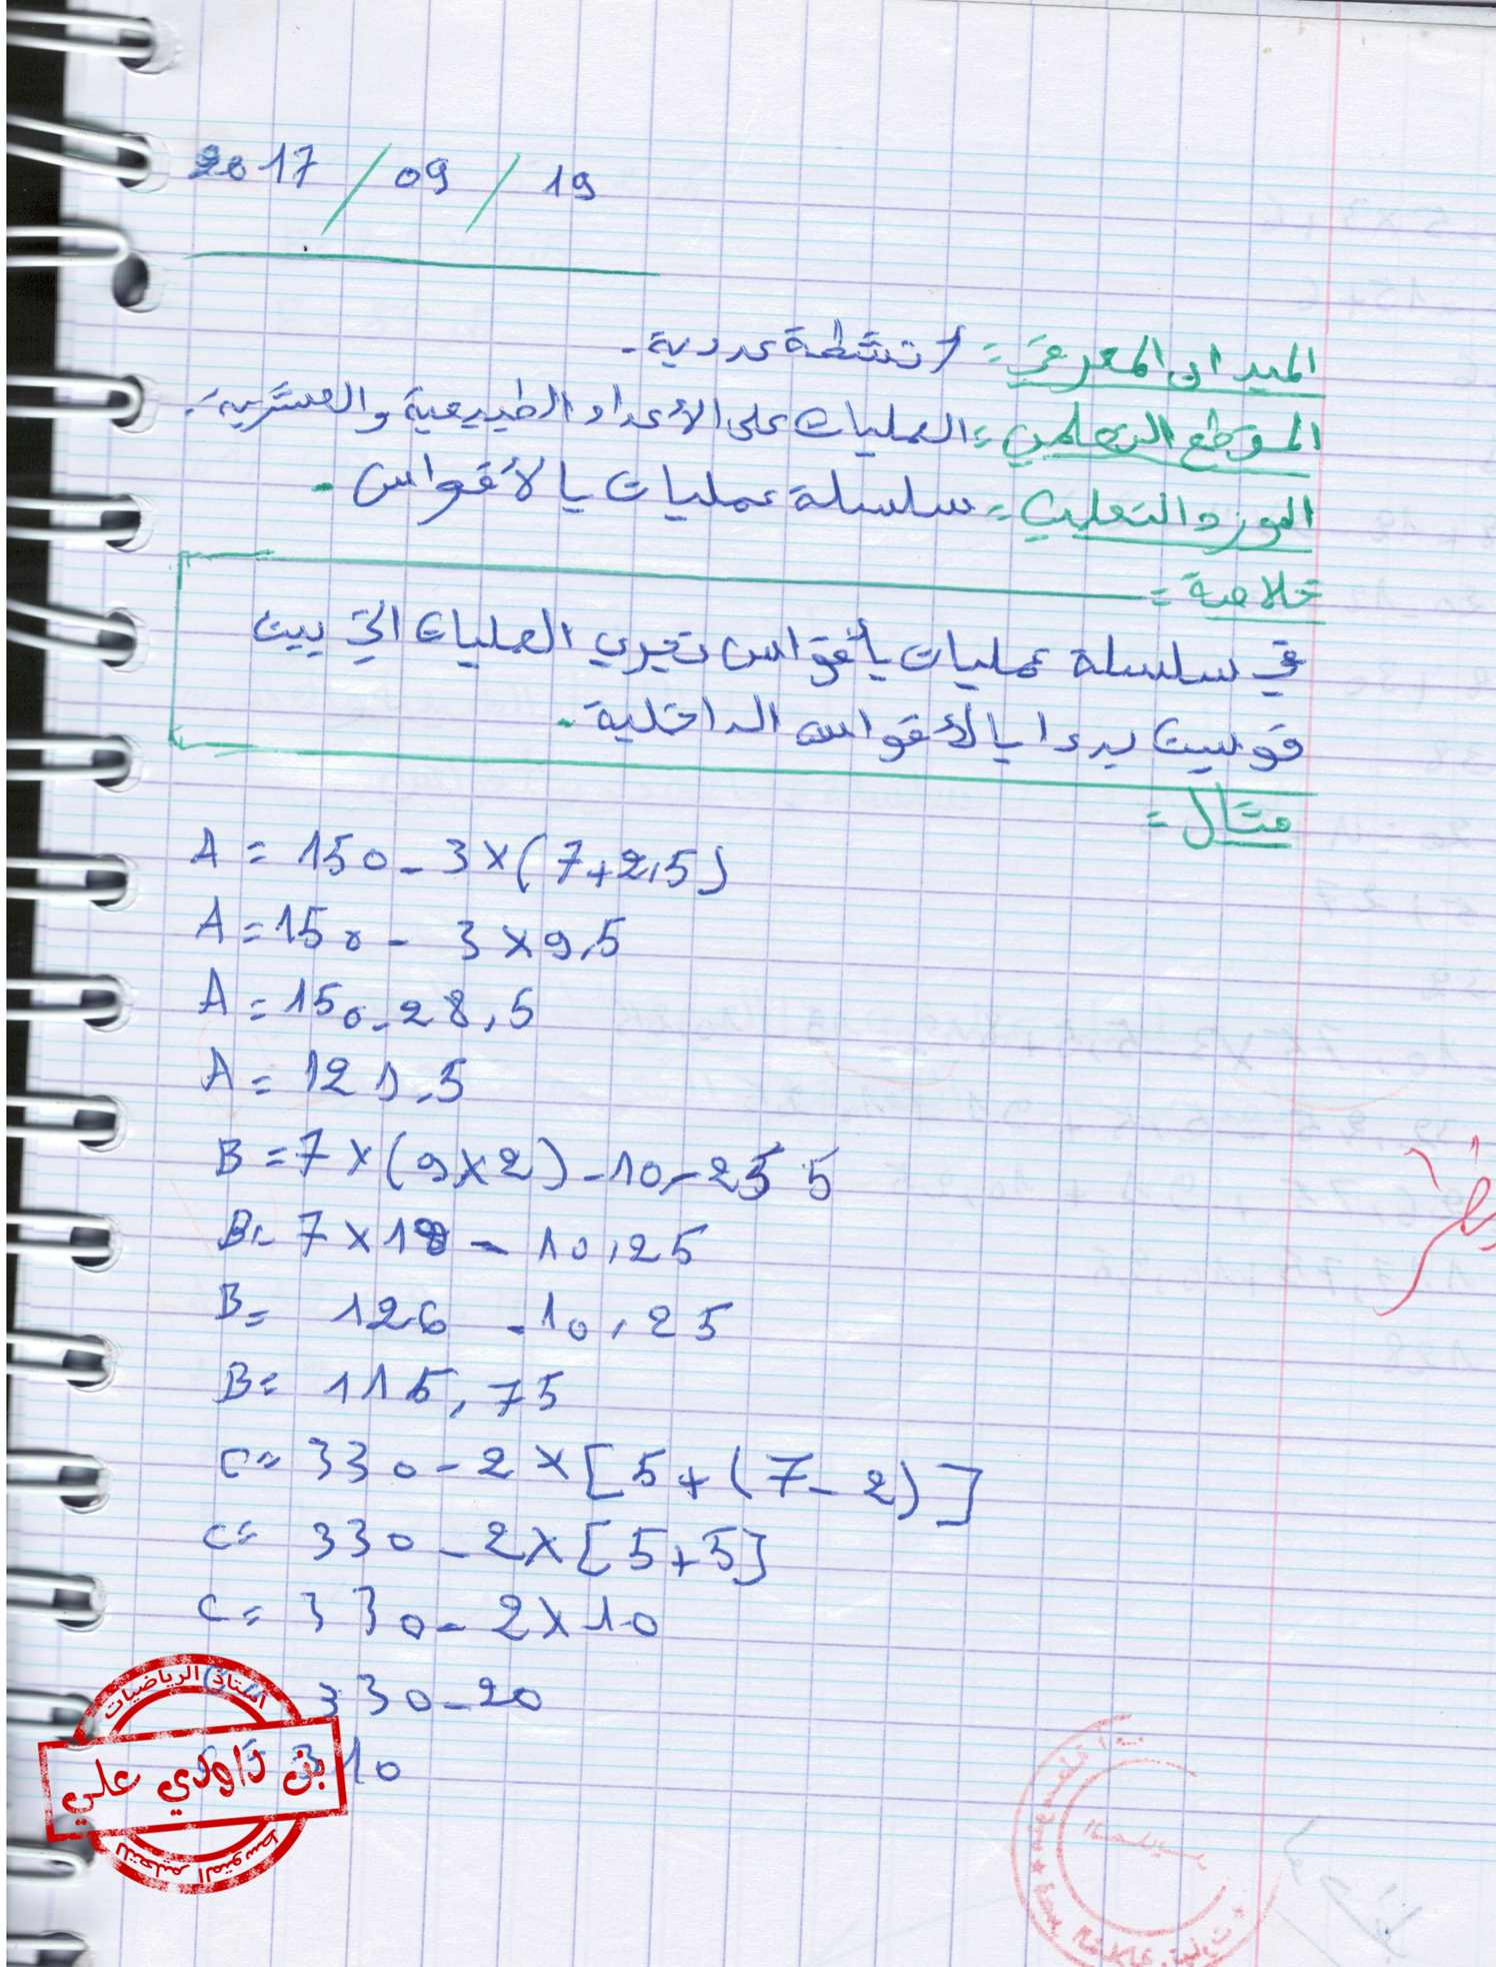 2017 / 09 / 19
الميدان المعرفي = أنشطة عددية.
المقطع التعلمي = العمليات على الأعداد الطبيعية والعشرية.
المورد التعلمي = سلسلة عمليات بالأقواس.
خلاصة =
في سلسلة عمليات بأقواس نجري العمليات التي بين
قوسين بدءا بالأقواس الداخلية.
مثال =
A = 150 - 3 × (7 + 2,5)
A = 150 - 3 × 9,5
A = 150 - 28,5
A = 121,5
B = 7 × (9 × 2) - 10,25
B = 7 × 18 - 10,25
B = 126 - 10,25
B = 115,75
C = 330 - 2 × [5 + (7 - 2)]
C = 330 - 2 × [5 + 5]
C = 330 - 2 × 10
330 - 20
310
أستاذ الرياضيات
بن داودي علي
للتعليم المتوسط